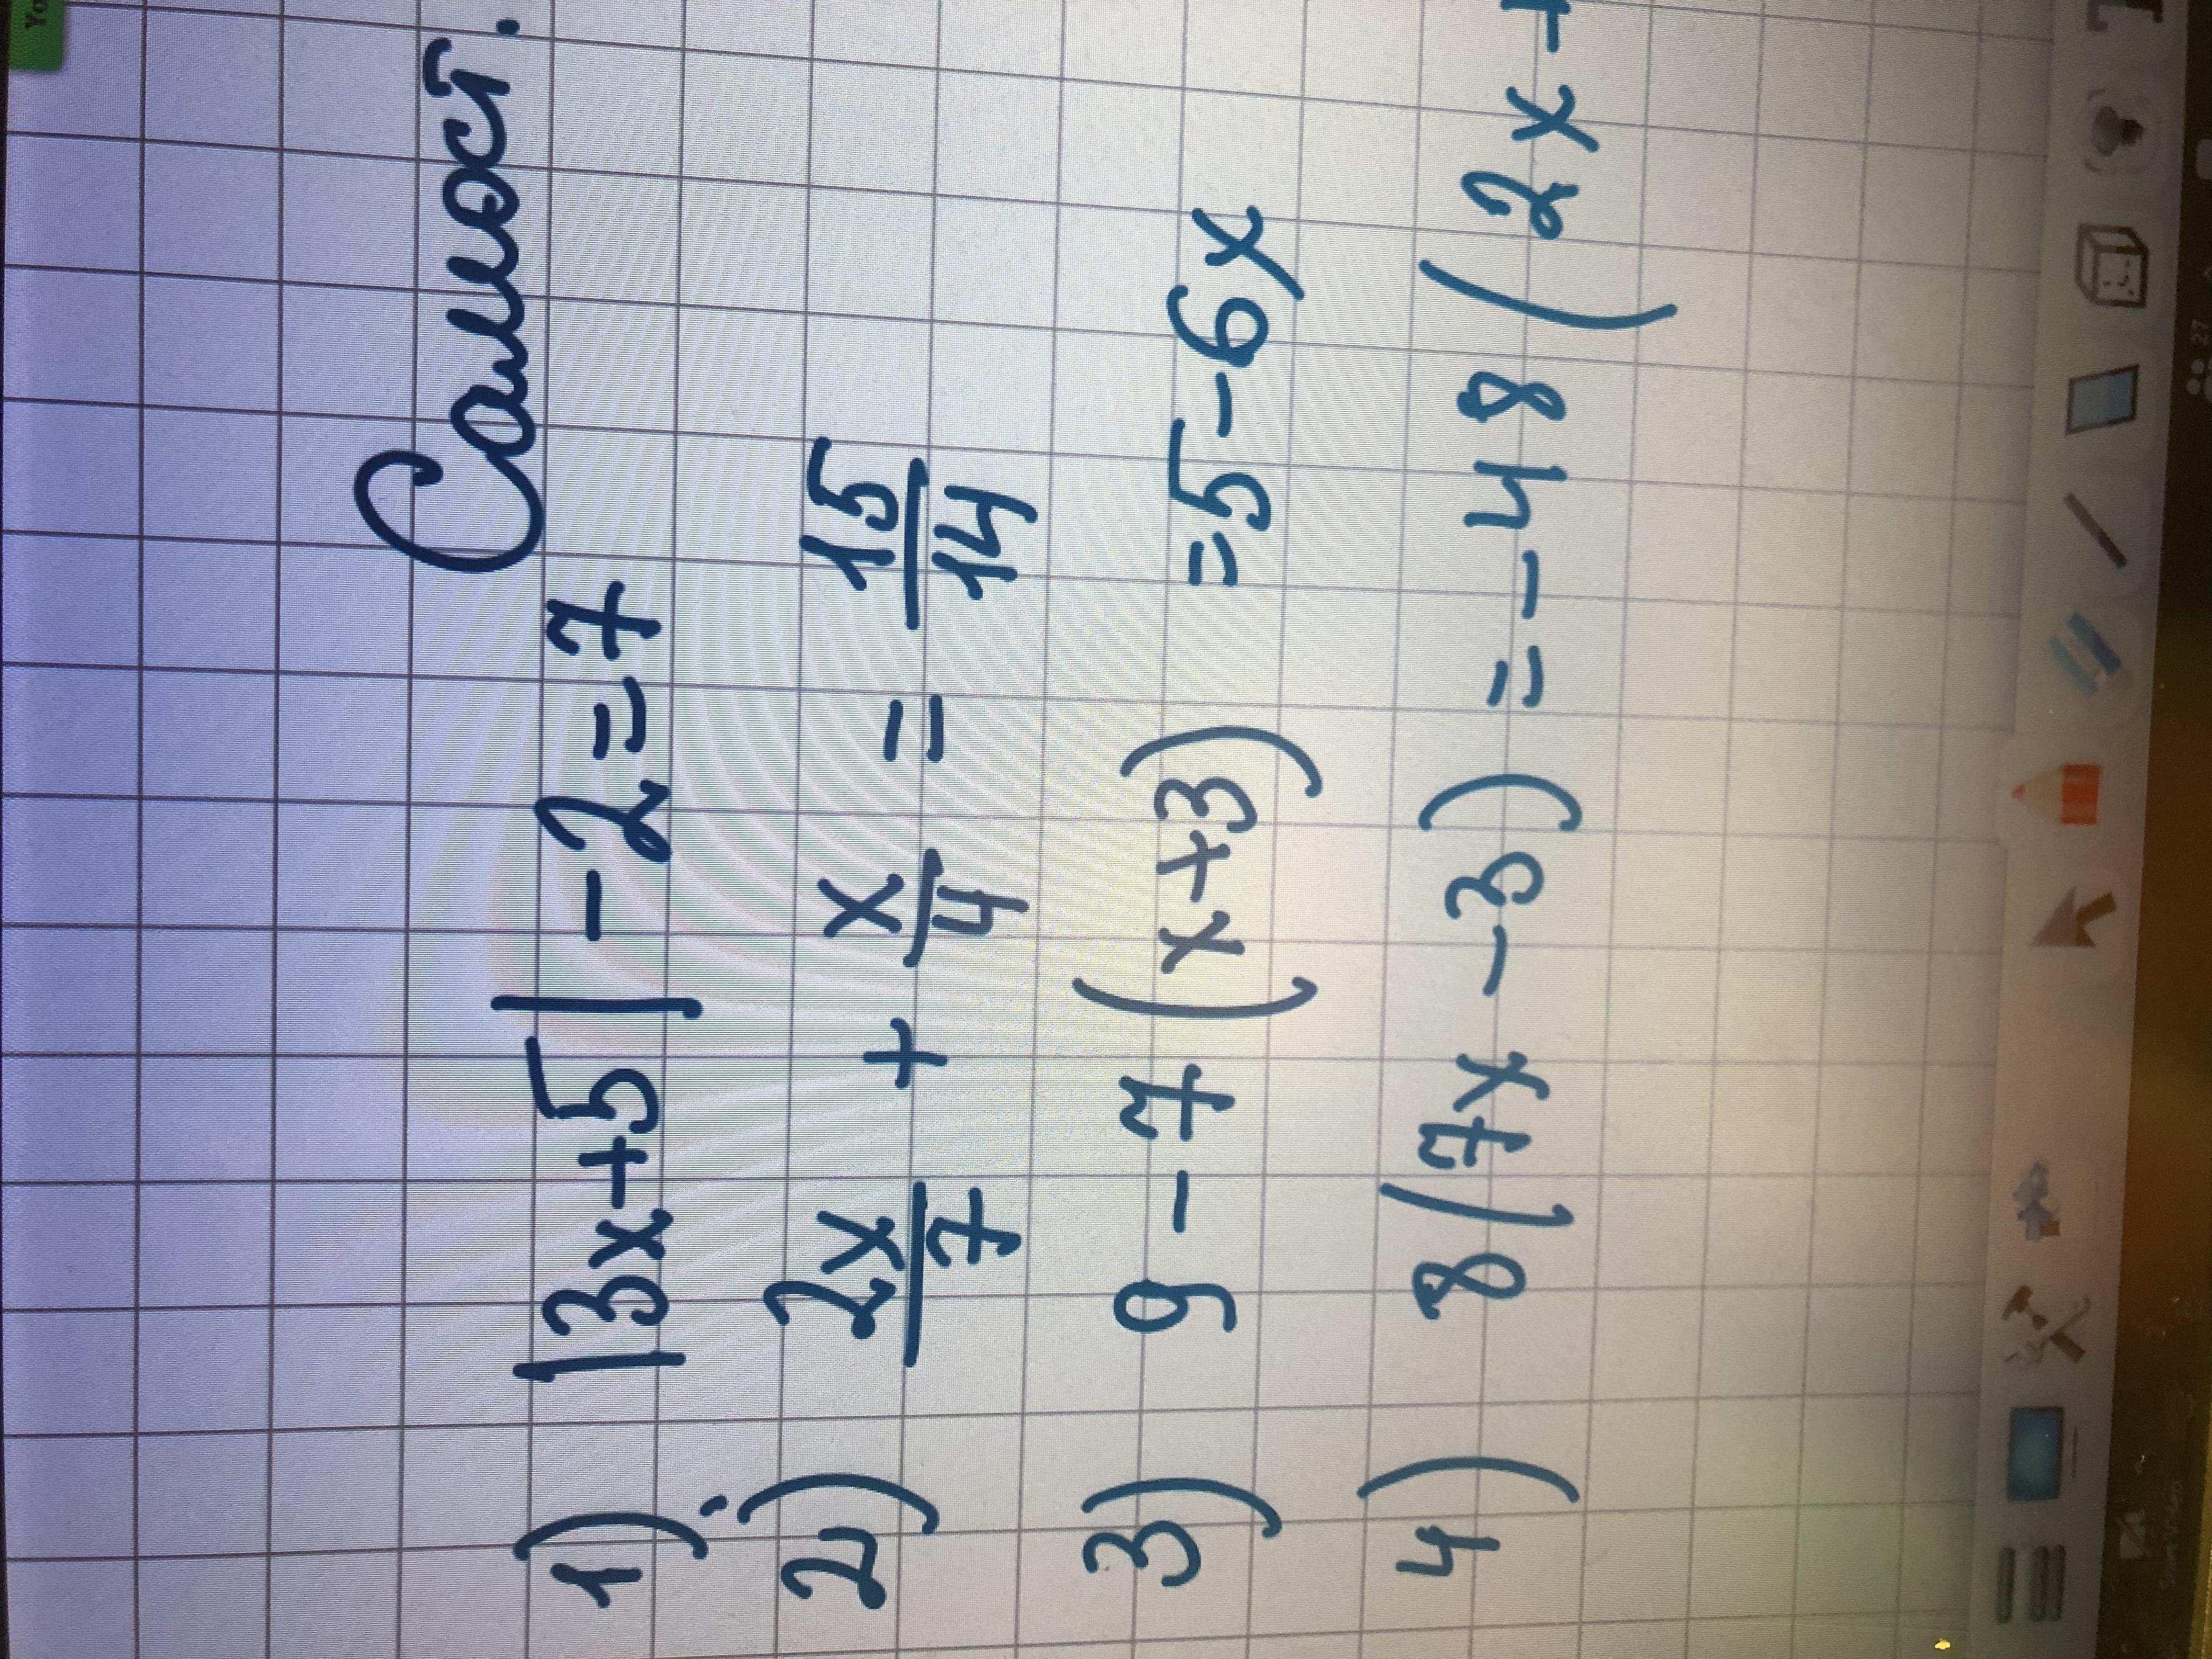 Самост.
1) |3x+5| - 2 = 7
2) 2x/7 + x/4 = 15/14
3) 9 - 7 (x+3) = 5-6x
4) 8(7x - 3) = -48(2x+
27